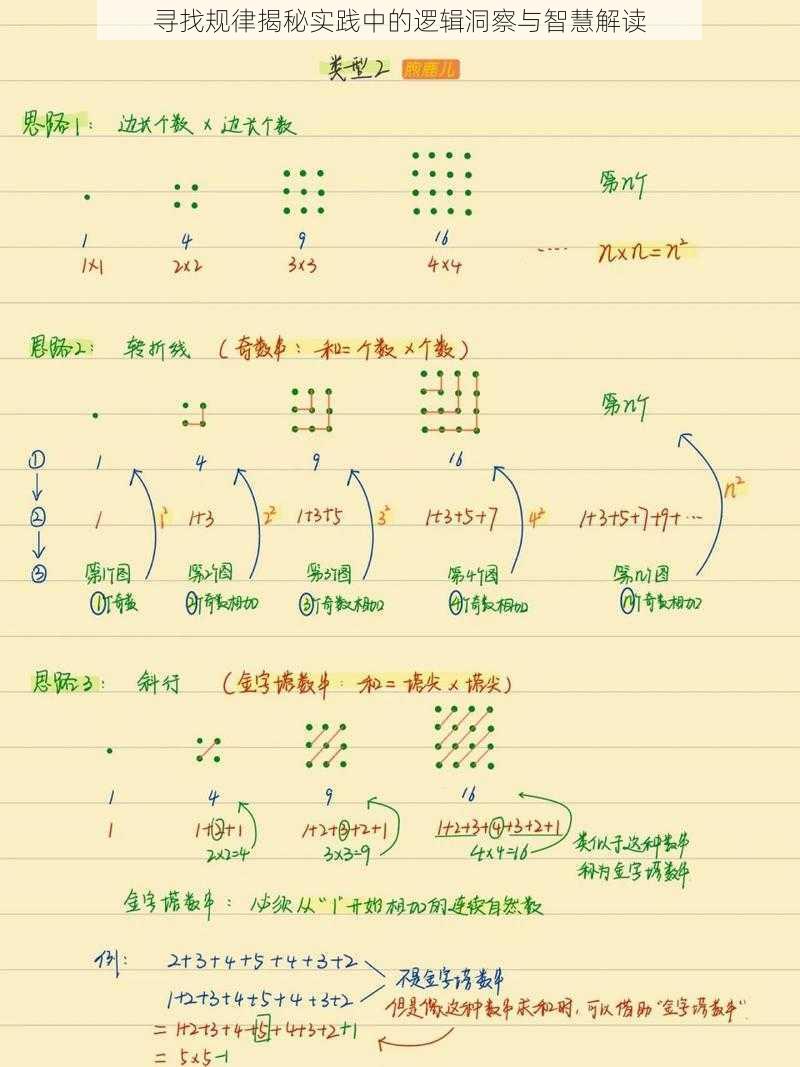 寻找规律揭秘实践中的逻辑洞察与智慧解读
类型2 煦鹿儿
思路1： 边长个数 × 边长个数
第n个
1 4 9 16
1×1 2×2 3×3 4×4 ···· n×n=n²
思路2： 转折线 （奇数串：和=个数×个数）
第n个
① 1 4 9 16
② 1 1² 1+3 2² 1+3+5 3² 1+3+5+7 4² 1+3+5+7+9+··· n²
③ 第1个图 第2个图 第3个图 第4个图 第n个图
1个奇数 2个奇数相加 3个奇数相加 4个奇数相加 n个奇数相加
思路3： 斜行 （金字塔数串：和=塔尖×塔尖）
1 4 9 16
1 1+2+1 1+2+3+2+1 1+2+3+4+3+2+1
2×2=4 3×3=9 4×4=16
类似于这种数串
称为金字塔数串
金字塔数串：必须从“1”开始相加的连续自然数
例： 2+3+4+5+4+3+2
不是金字塔数串
1+2+3+4+5+4+3+2
但是像这种数串求和时，可以借助“金字塔数串”
=1+2+3+4+5+4+3+2+1
=5×5-1